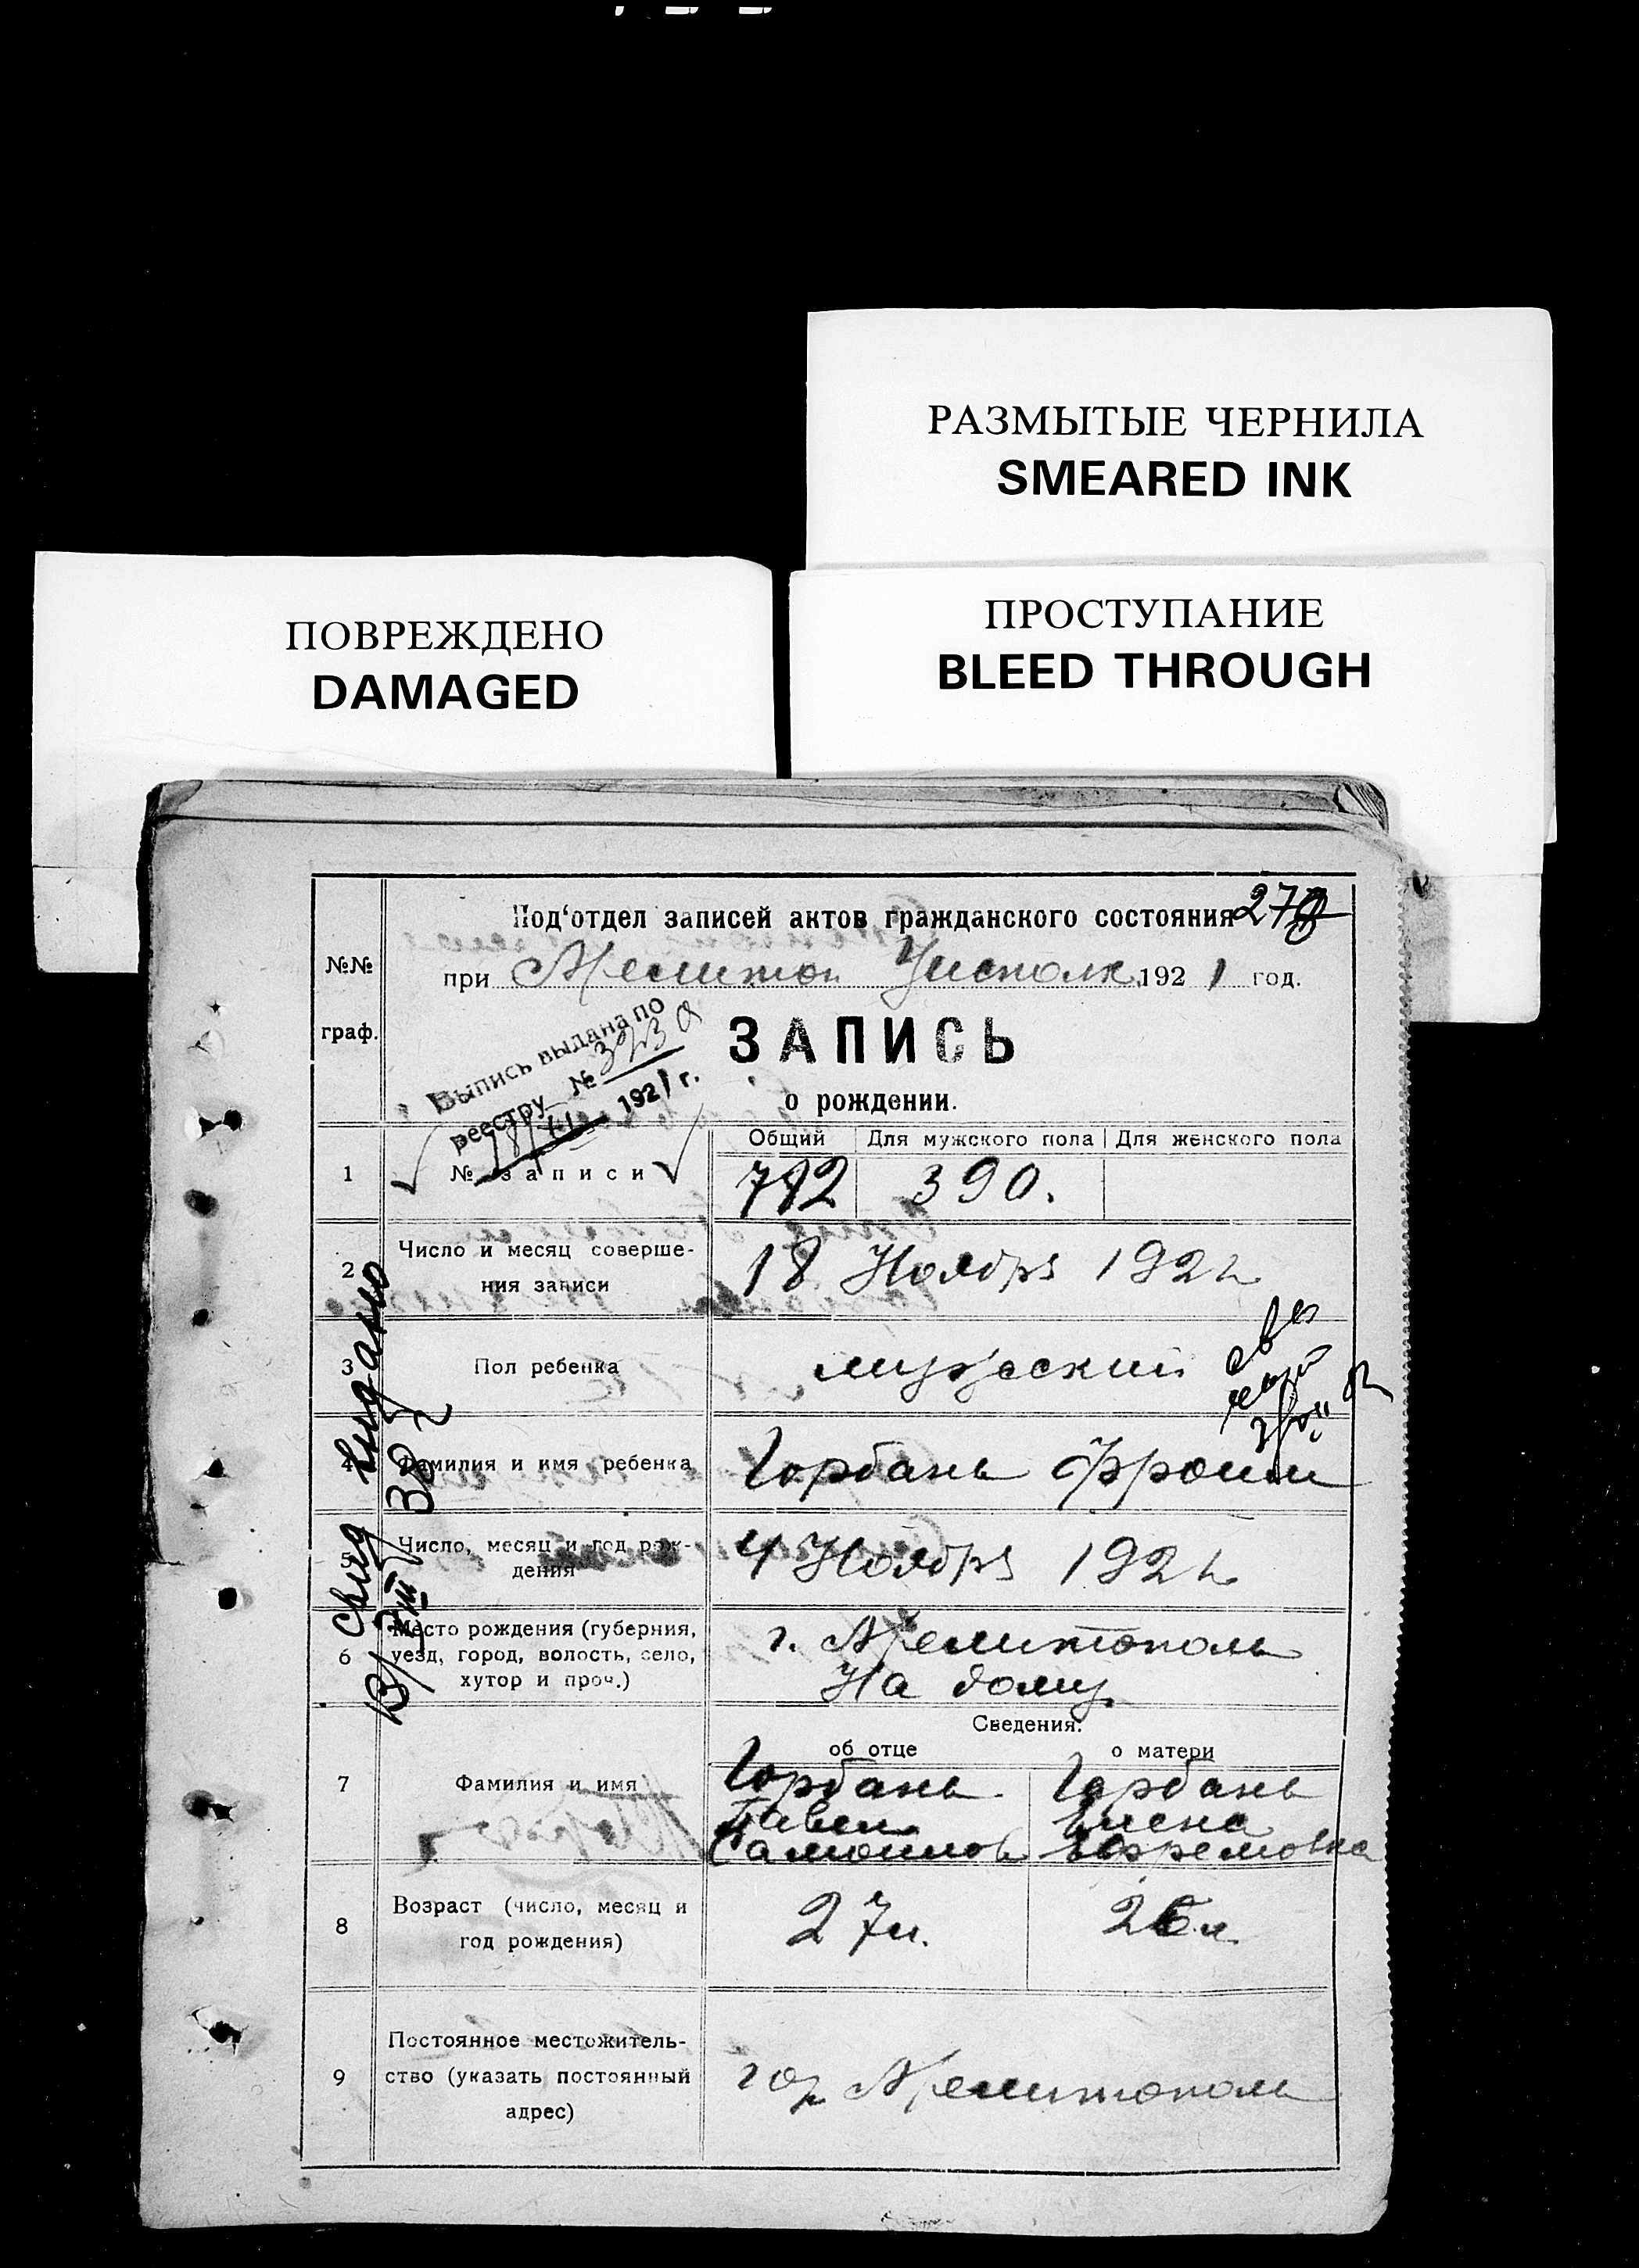 РАЗМЫТЫЕ ЧЕРНИЛА
SMEARED INK
ПРОСТУПАНИЕ
BLEED THROUGH
ПОВРЕЖДЕНО
DAMAGED
Под'отдел записей актов гражданского состояния
при Мелитоп. Уисполк. 1921 год.
№№
граф.
Выпись выдана по
реестру №
18/XI 1921 г.
ЗАПИСЬ
о рождении.
Общий Для мужского пола Для женского пола
1 № записи 390.
2 Число и месяц соверше-
ния записи
18 Ноября 1921 г.
3 Пол ребенка мужеский
4 Фамилия и имя ребенка Горбань Фроим
5 Число, месяц и год рож-
дения
4 Ноября 1921 г.
6 Место рождения (губерния,
уезд, город, волость, село,
хутор и проч.)
г. Мелитополь
На дому
Сведения:
об отце о матери
7 Фамилия и имя
Горбань Горбань
Павел Елена
Самойлов Ефремовна
8 Возраст (число, месяц и
год рождения)
27 л.
9 Постоянное местожитель-
ство (указать постоянный
адрес)
гор Мелитополь